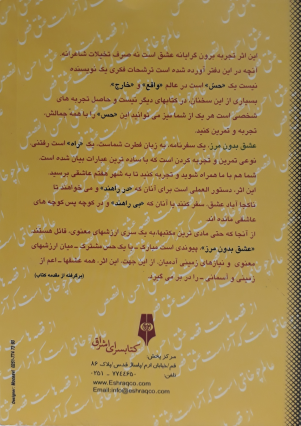 این اثر تجربه برون گرایانه عشق است نه صرف تخیلات شاعرانه.
آنچه در این دفتر آورده شده است ترشحات فکری یک نویسنده
نیست یک «حس» است در عالم «واقع» و «خارج».
بسیاری از این سخنان، در کتابهای دیگر نیست و حاصل تجربه های
شخصی است هر یک از شما نیز می توانید این «حس» را با همه جمالش،
تجربه و تمرین کنید.
عشق بدون مرز، یک سفرنامه، به زبان فطرت شماست. یک «راه» است رفتنی
نوعی تمرین و تجربه کردن است که با ساده ترین عبارات بیان شده است.
شما هم با ما همراه شوید و تجربه کنید تا به شهر هفتم عاشقی برسید.
این اثر، دستور العملی است برای آنان که «در راهند» و می خواهند تا
ناکجا آباد عشق، سفر کنند یا آنان که «بی راهند» و در کوچه پس کوچه های
عاشقی مانده اند.
از آنجا که حتی مادی ترین مکتبها، به یک سری ارزشهای معنوی، قائل هستند.
«عشق بدون مرز»، پیوندی است مبارک ـ با یک حس مشترک ـ میان ارزشهای
معنوی و نیازهای زمینی آدمیان. از این جهت، این اثر، همه عشقها ـ اعم از
زمینی و آسمانی ـ را در بر می گیرد.
(برگرفته از مقدمه کتاب)
کتابسرای اشراق
مرکز پخش:
قم/خیابان ارم/پاساژ قدس /پلاک ۸۶
تلفن: ۷۷۴۴۶۵۰ - ۰۲۵۱
www.Eshraqco.com
Info@eshraqco.com